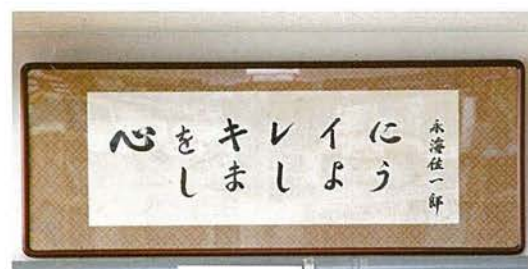 心をキレイに
しましよう
永海佐一郎